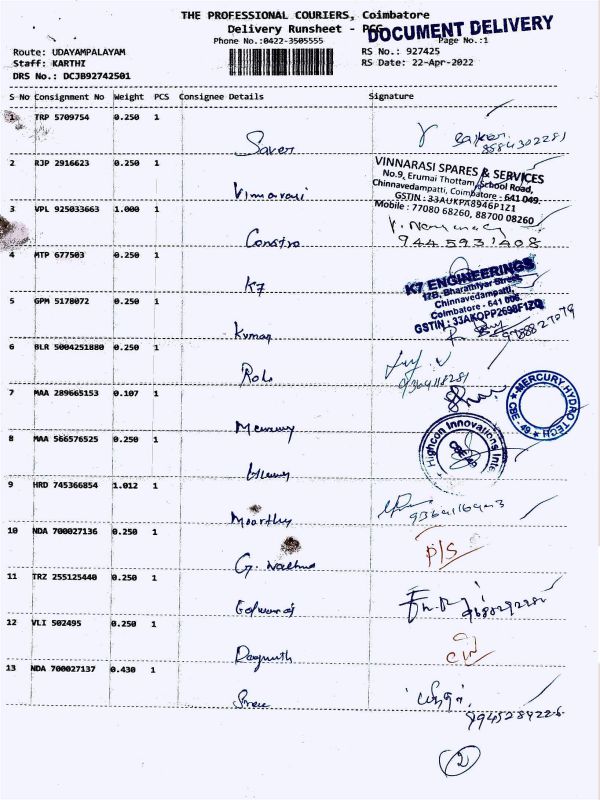 THE PROFESSIONAL COURIERS, Coimbatore
Delivery Runsheet - PCC
DOCUMENT DELIVERY
Phone No.:0422-3505555
Page No.:1
Route: UDAYAMPALAYAM
RS No.: 927425
Staff: KARTHI
RS Date: 22-Apr-2022
DRS No.: DCJB92742501
S No Consignment No Weight PCS Consignee Details Signature
1 TRP 5709754 0.250 1
2 RJP 2916623 0.250 1
VINNARASI SPARES & SERVICES
No.9, Erumai Thottam, School Road,
Chinnavedampatti, Coimbatore - 641 049.
GSTIN : 33AUKPA8946P1Z1
Mobile : 77080 68260, 88700 08260
3 VPL 925033663 1.000 1
9445931408
Constro
4 MTP 677503 0.250 1
K7
K7 ENGINEERINGS
17B, Bharathiyar Street,
Chinnavedampatti,
Coimbatore - 641 006.
GSTIN : 33AKQPP2698F1ZQ
5 GPM 5178072 0.250 1
Kumar
6 BLR 5004251880 0.250 1
7 MAA 289665153 0.107 1
Mercury
MERCURY HYDRO TECH
CBE - 49
8 MAA 566576525 0.250 1
Highcon Innovations Inte
CBE-49
9 HRD 745366854 1.012 1
Moorthy
10 NDA 700027136 0.250 1
P/S
11 TRZ 255125440 0.250 1
12 VLI 502495 0.250 1
13 NDA 700027137 0.430 1
2